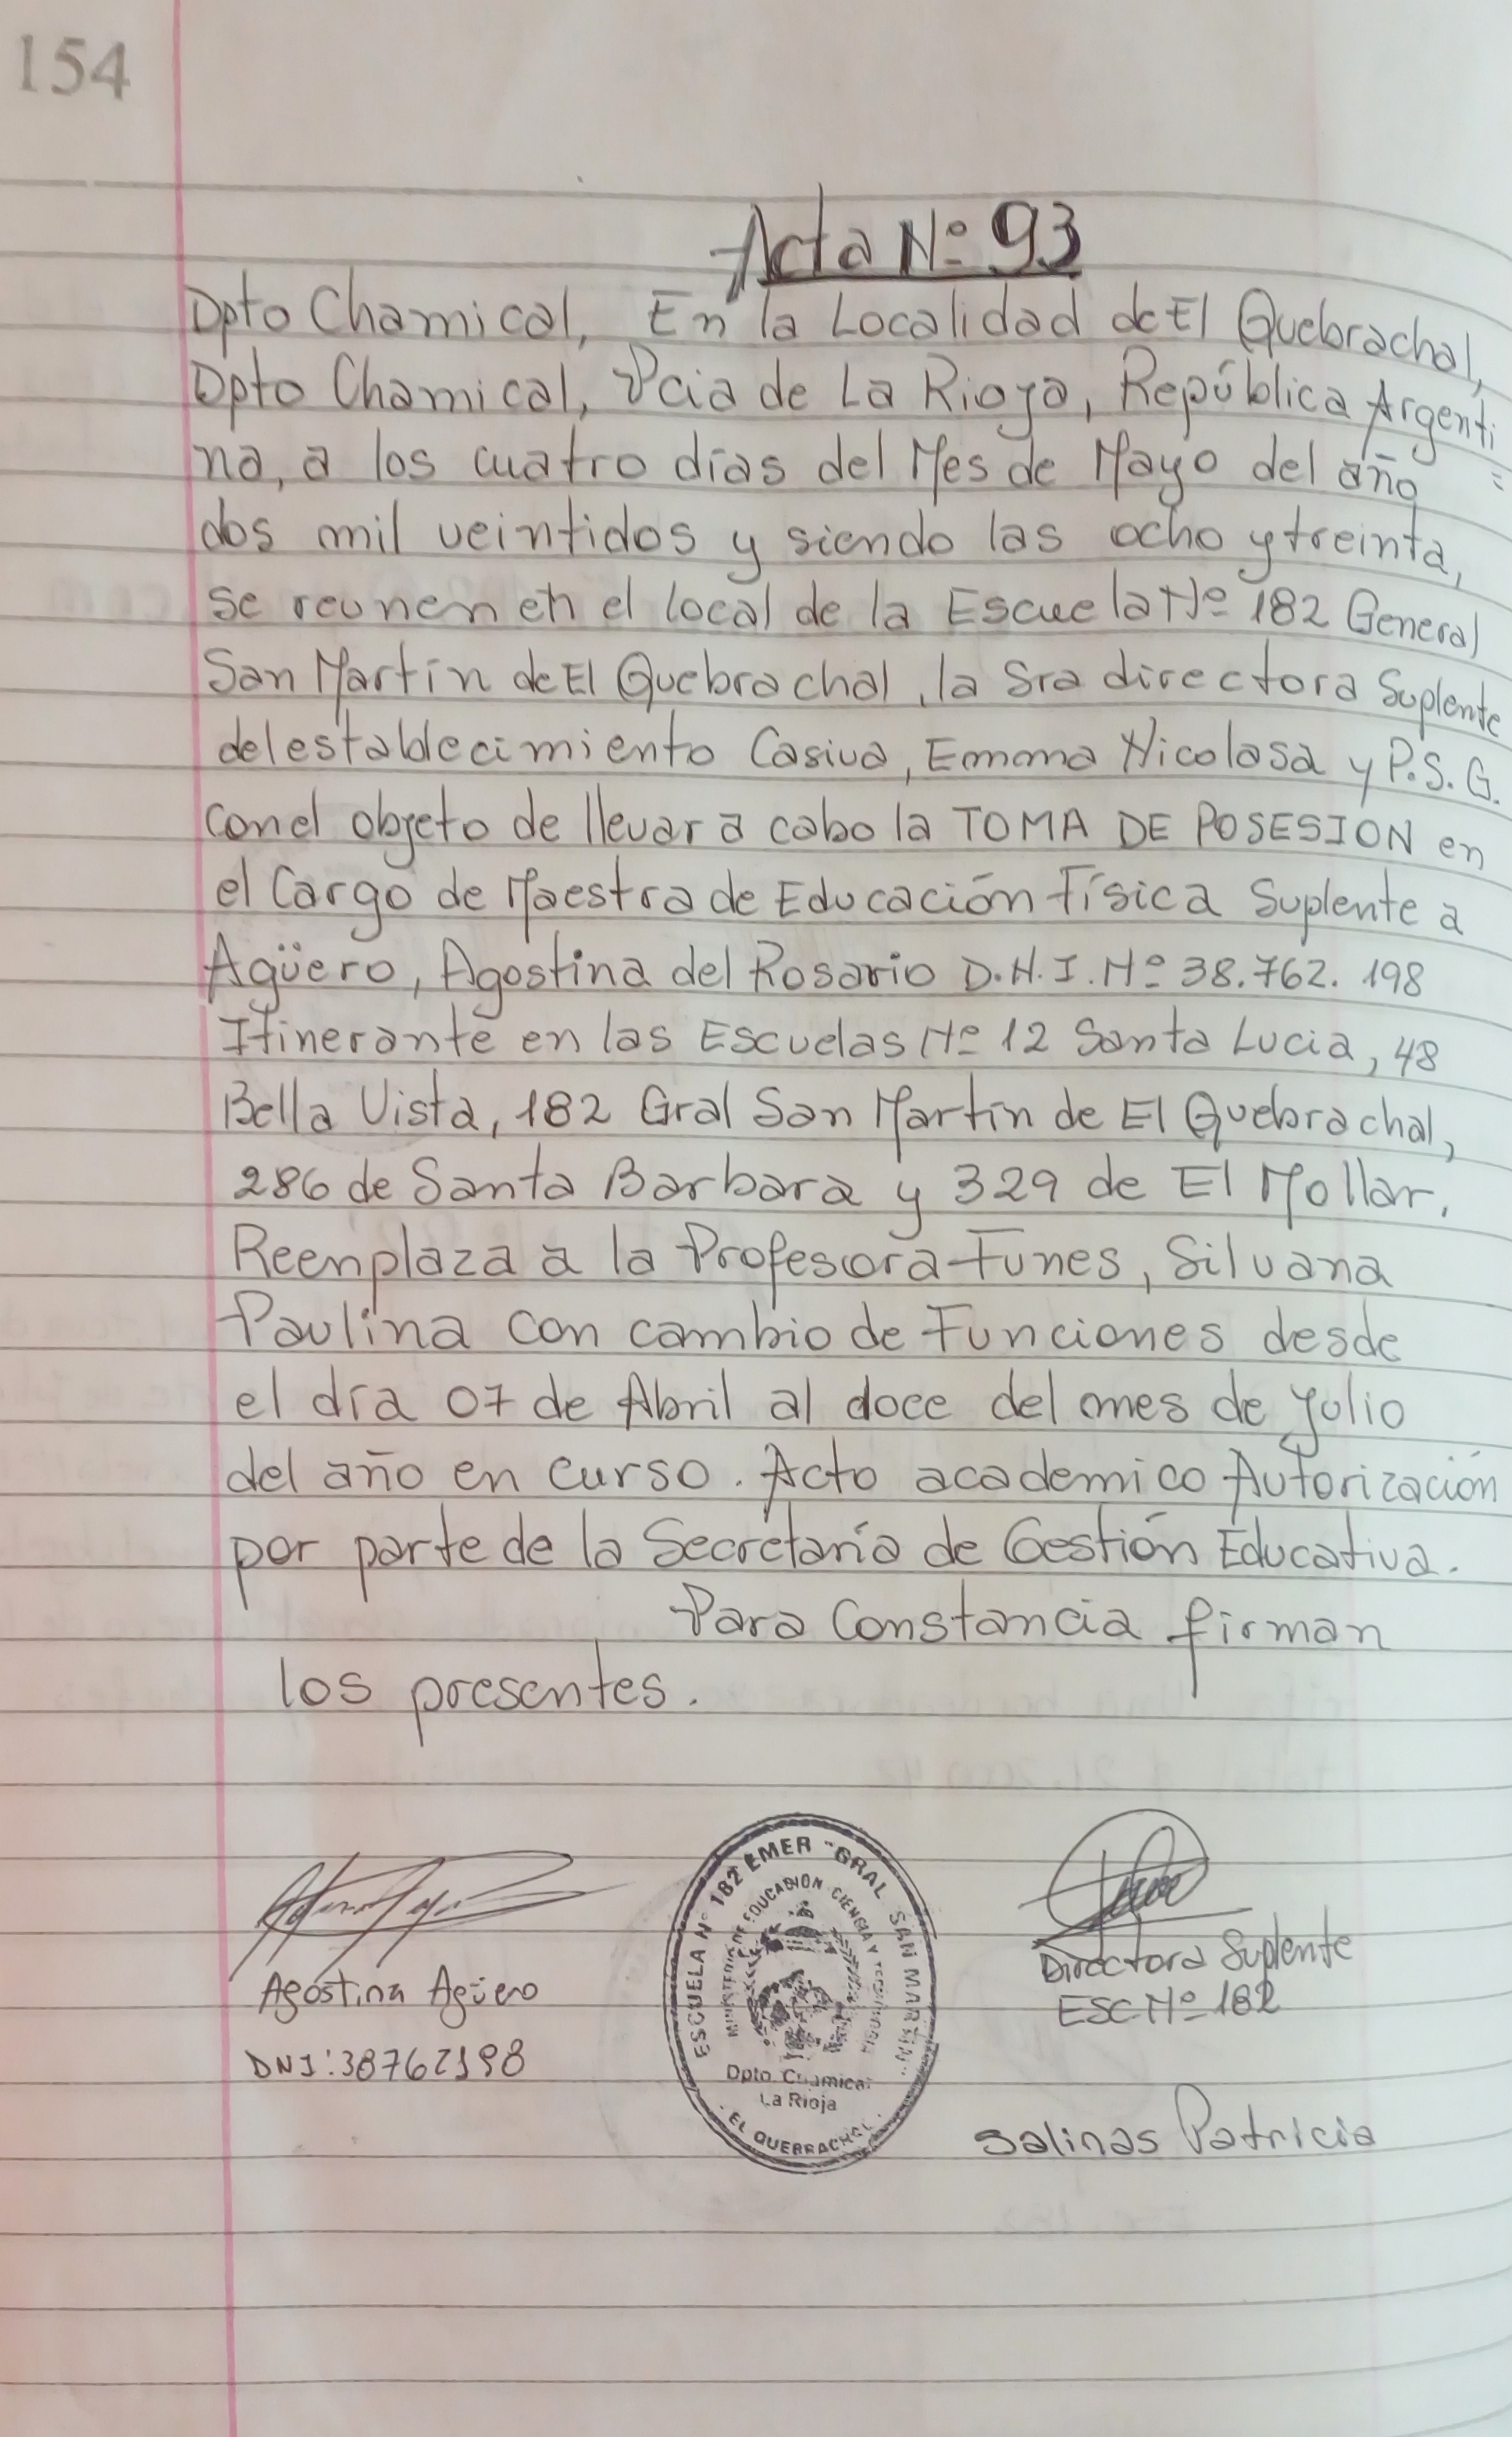 154
Acta Nº 93
Dpto Chamical, En la Localidad de El Quebrachal,
Dpto Chamical, Pcia de La Rioja, República Argenti
na, a los cuatro días del Mes de Mayo del año
dos mil veintidos y siendo las ocho y treinta,
se reunen en el local de la Escuela Nº 182 General
San Martín de El Quebrachal, la Sra directora Suplente
del establecimiento Casiva, Emma Nicolasa y P.S.G.
con el objeto de llevar a cabo la TOMA DE POSESION en
el Cargo de Maestra de Educación Física Suplente a
Agüero, Agostina del Rosario D.N.I. Nº 38.762.198
Itinerante en las Escuelas Nº 12 Santa Lucia, 48
Bella Vista, 182 Gral San Martín de El Quebrachal,
286 de Santa Barbara y 329 de El Mollar.
Reenplaza a la Profesora Funes, Silvana
Paulina con cambio de Funciones desde
el día 07 de Abril al doce del mes de Julio
del año en curso. Acto academico Autorización
por parte de la Secretaría de Gestión Educativa.
Para Constancia firman
los presentes.
Agostina Agüero
DNI: 38762198
ESCUELA Nº 182 EMER "GRAL SAN MARTIN"
MINISTERIO DE EDUCACION CIENCIA Y
Dpto. Chamical
La Rioja
EL QUEBRACHAL
Directora Suplente
ESC Nº 182
Salinas Patricia